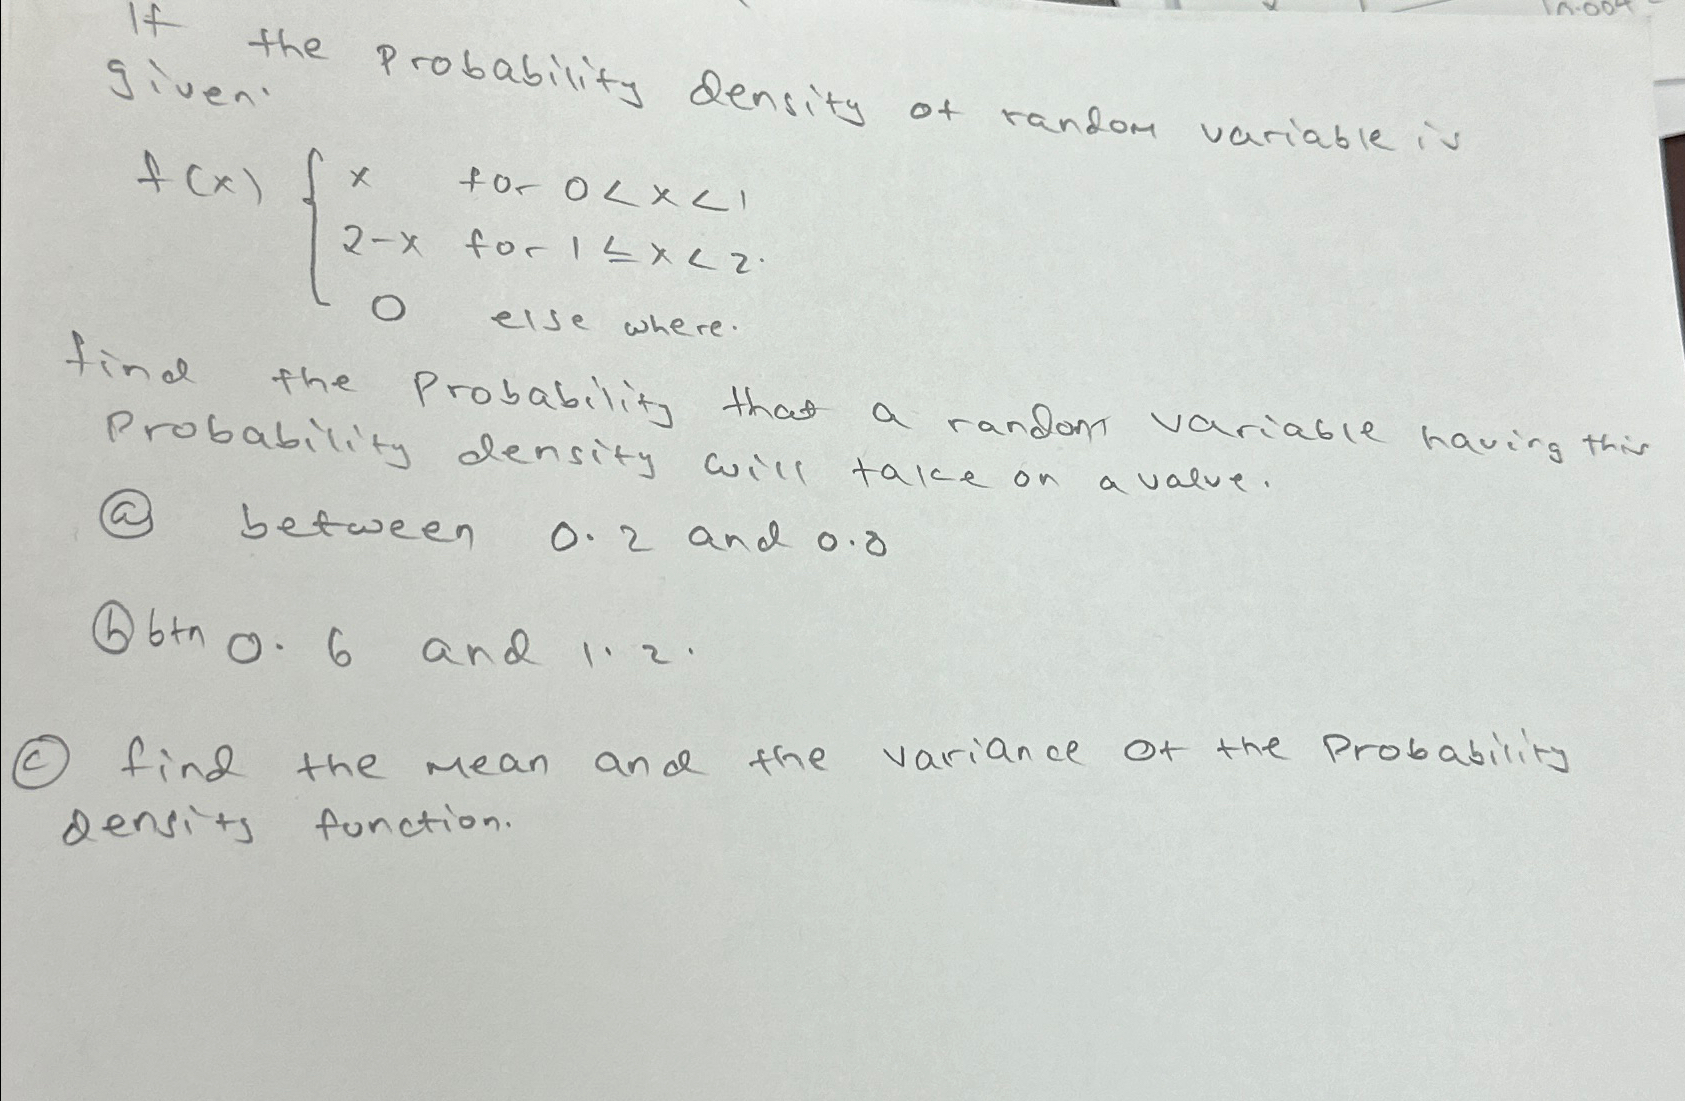 If the probability density of random variable is
given.
f(x) { x for 0 < x < 1
2-x for 1 ≤ x < 2.
0 else where.
find the probability that a random variable having this
Probability density will take on a value.
(a) between 0.2 and 0.8
(b) btn 0.6 and 1.2.
(c) find the mean and the variance of the Probability
density function.